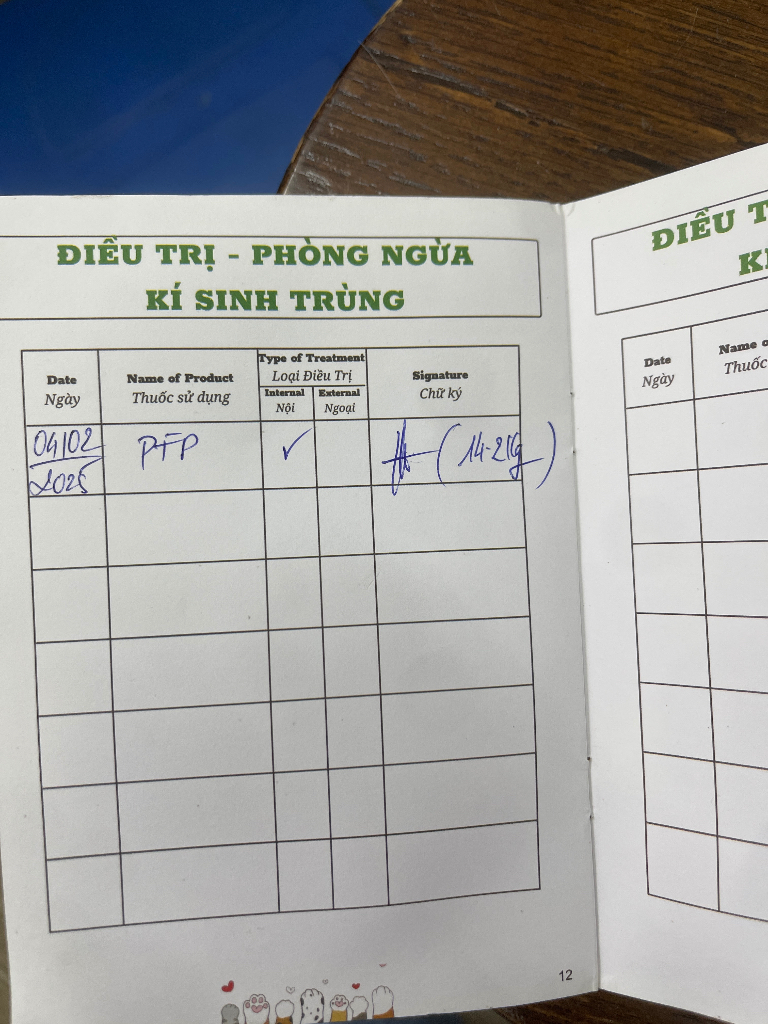 ĐIỀU TRỊ - PHÒNG NGỪA
KÍ SINH TRÙNG
Date
Ngày
Name of Product
Thuốc sử dụng
Type of Treatment
Loại Điều Trị
Internal
Nội
External
Ngoại
Signature
Chữ ký
04/02
2025
PFP
✓
12
ĐIỀU T
KÍ
Date
Ngày
Name o
Thuốc